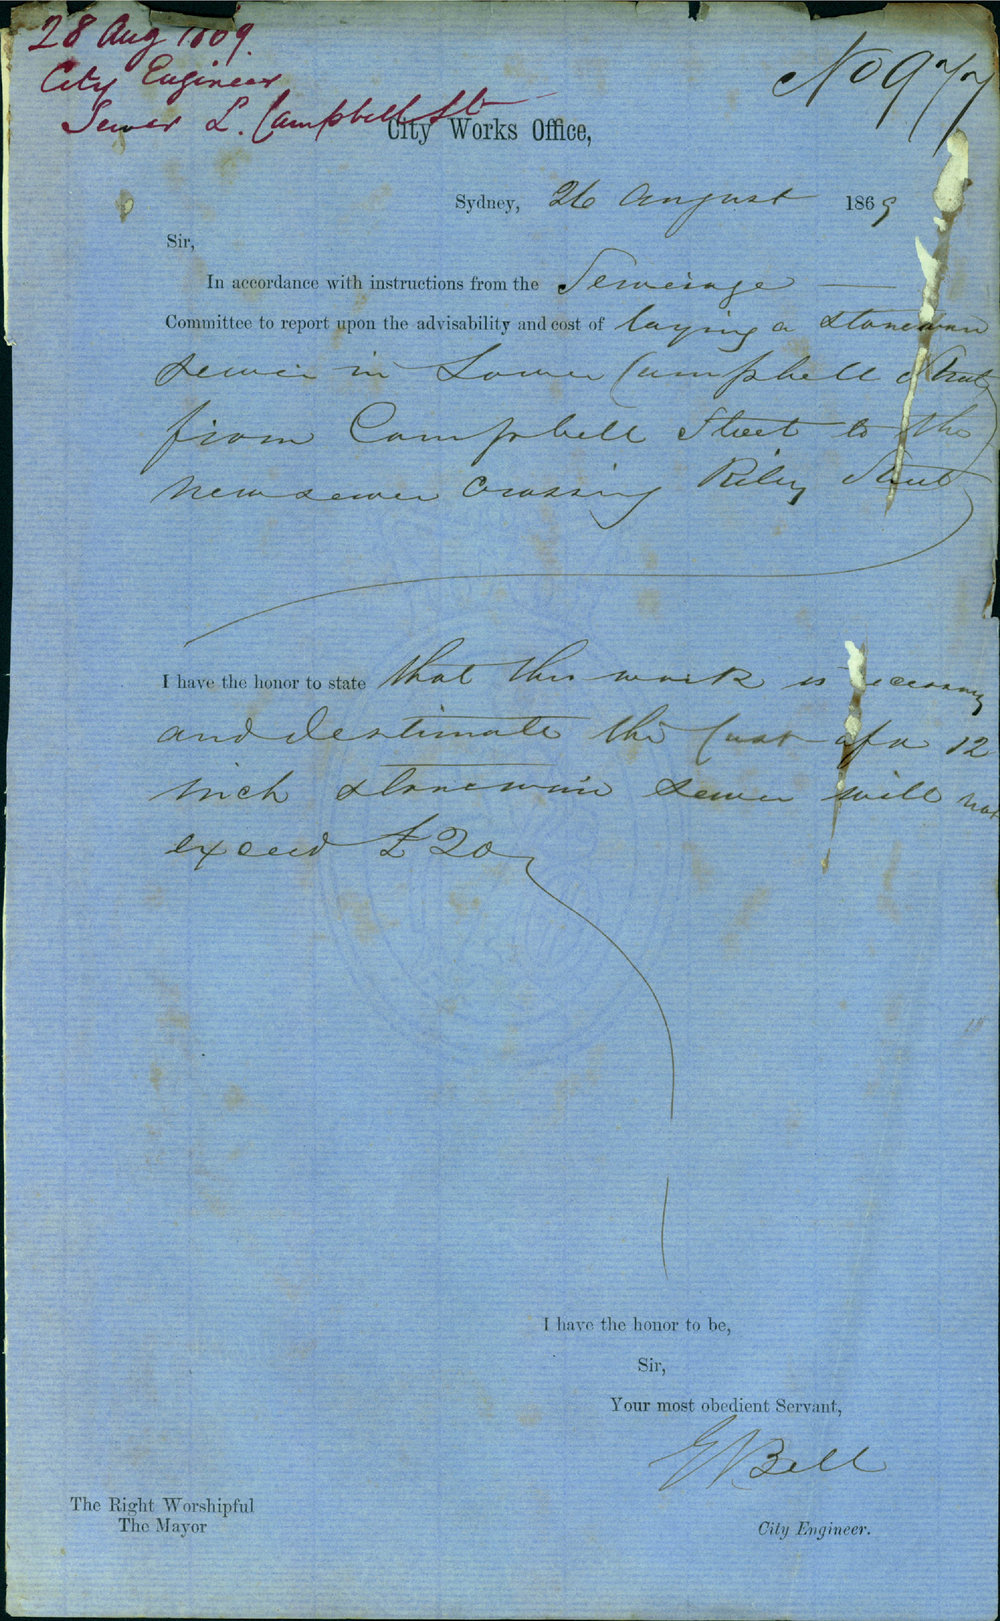 28 Aug 1869.
City Engineer
Sewer L. Campbell St
No 977
City Works Office,
Sydney, 26 August 1869
Sir,
In accordance with instructions from the Sewerage
Committee to report upon the advisability and cost of laying a stoneware
sewer in Lower Campbell Street
from Campbell Street to the
new sewer crossing Riley Street
I have the honor to state that this work is necessary
and I estimate the Cost of a 12
inch stoneware sewer will not
exceed £20
I have the honor to be,
Sir,
Your most obedient Servant,
E Bell
The Right Worshipful
The Mayor
City Engineer.